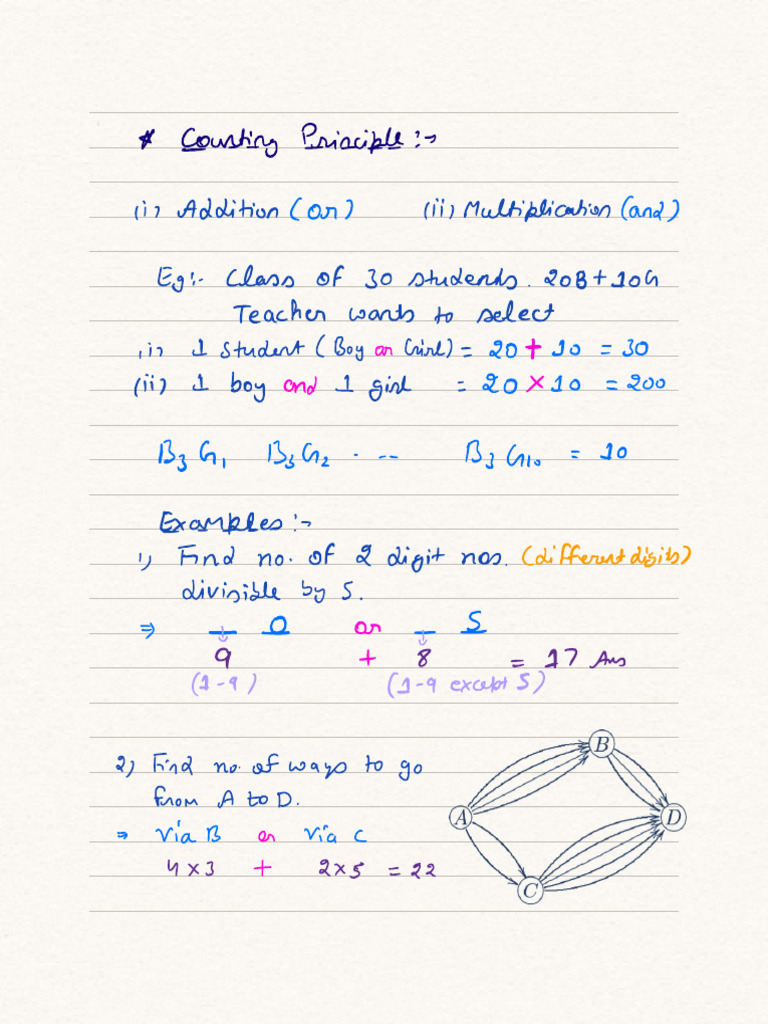 * Counting Principle :-
(i) Addition (or) (ii) Multiplication (and)
Eg:- Class of 30 students. 20B + 10G
Teacher wants to select
(i) 1 Student (Boy or Girl) = 20 + 10 = 30
(ii) 1 boy and 1 girl = 20 × 10 = 200
B₃ G₁ B₃ G₂ . -- B₃ G₁₀ = 10
Examples :-
1) Find no. of 2 digit nos. (different digits)
divisible by 5.
⇒ _ 0 or _ 5
9 + 8 = 17 Ans
(1-9) (1-9 except 5)
2) Find no. of ways to go
from A to D.
⇒ via B or via C
4 × 3 + 2 × 5 = 22
B
A D
C